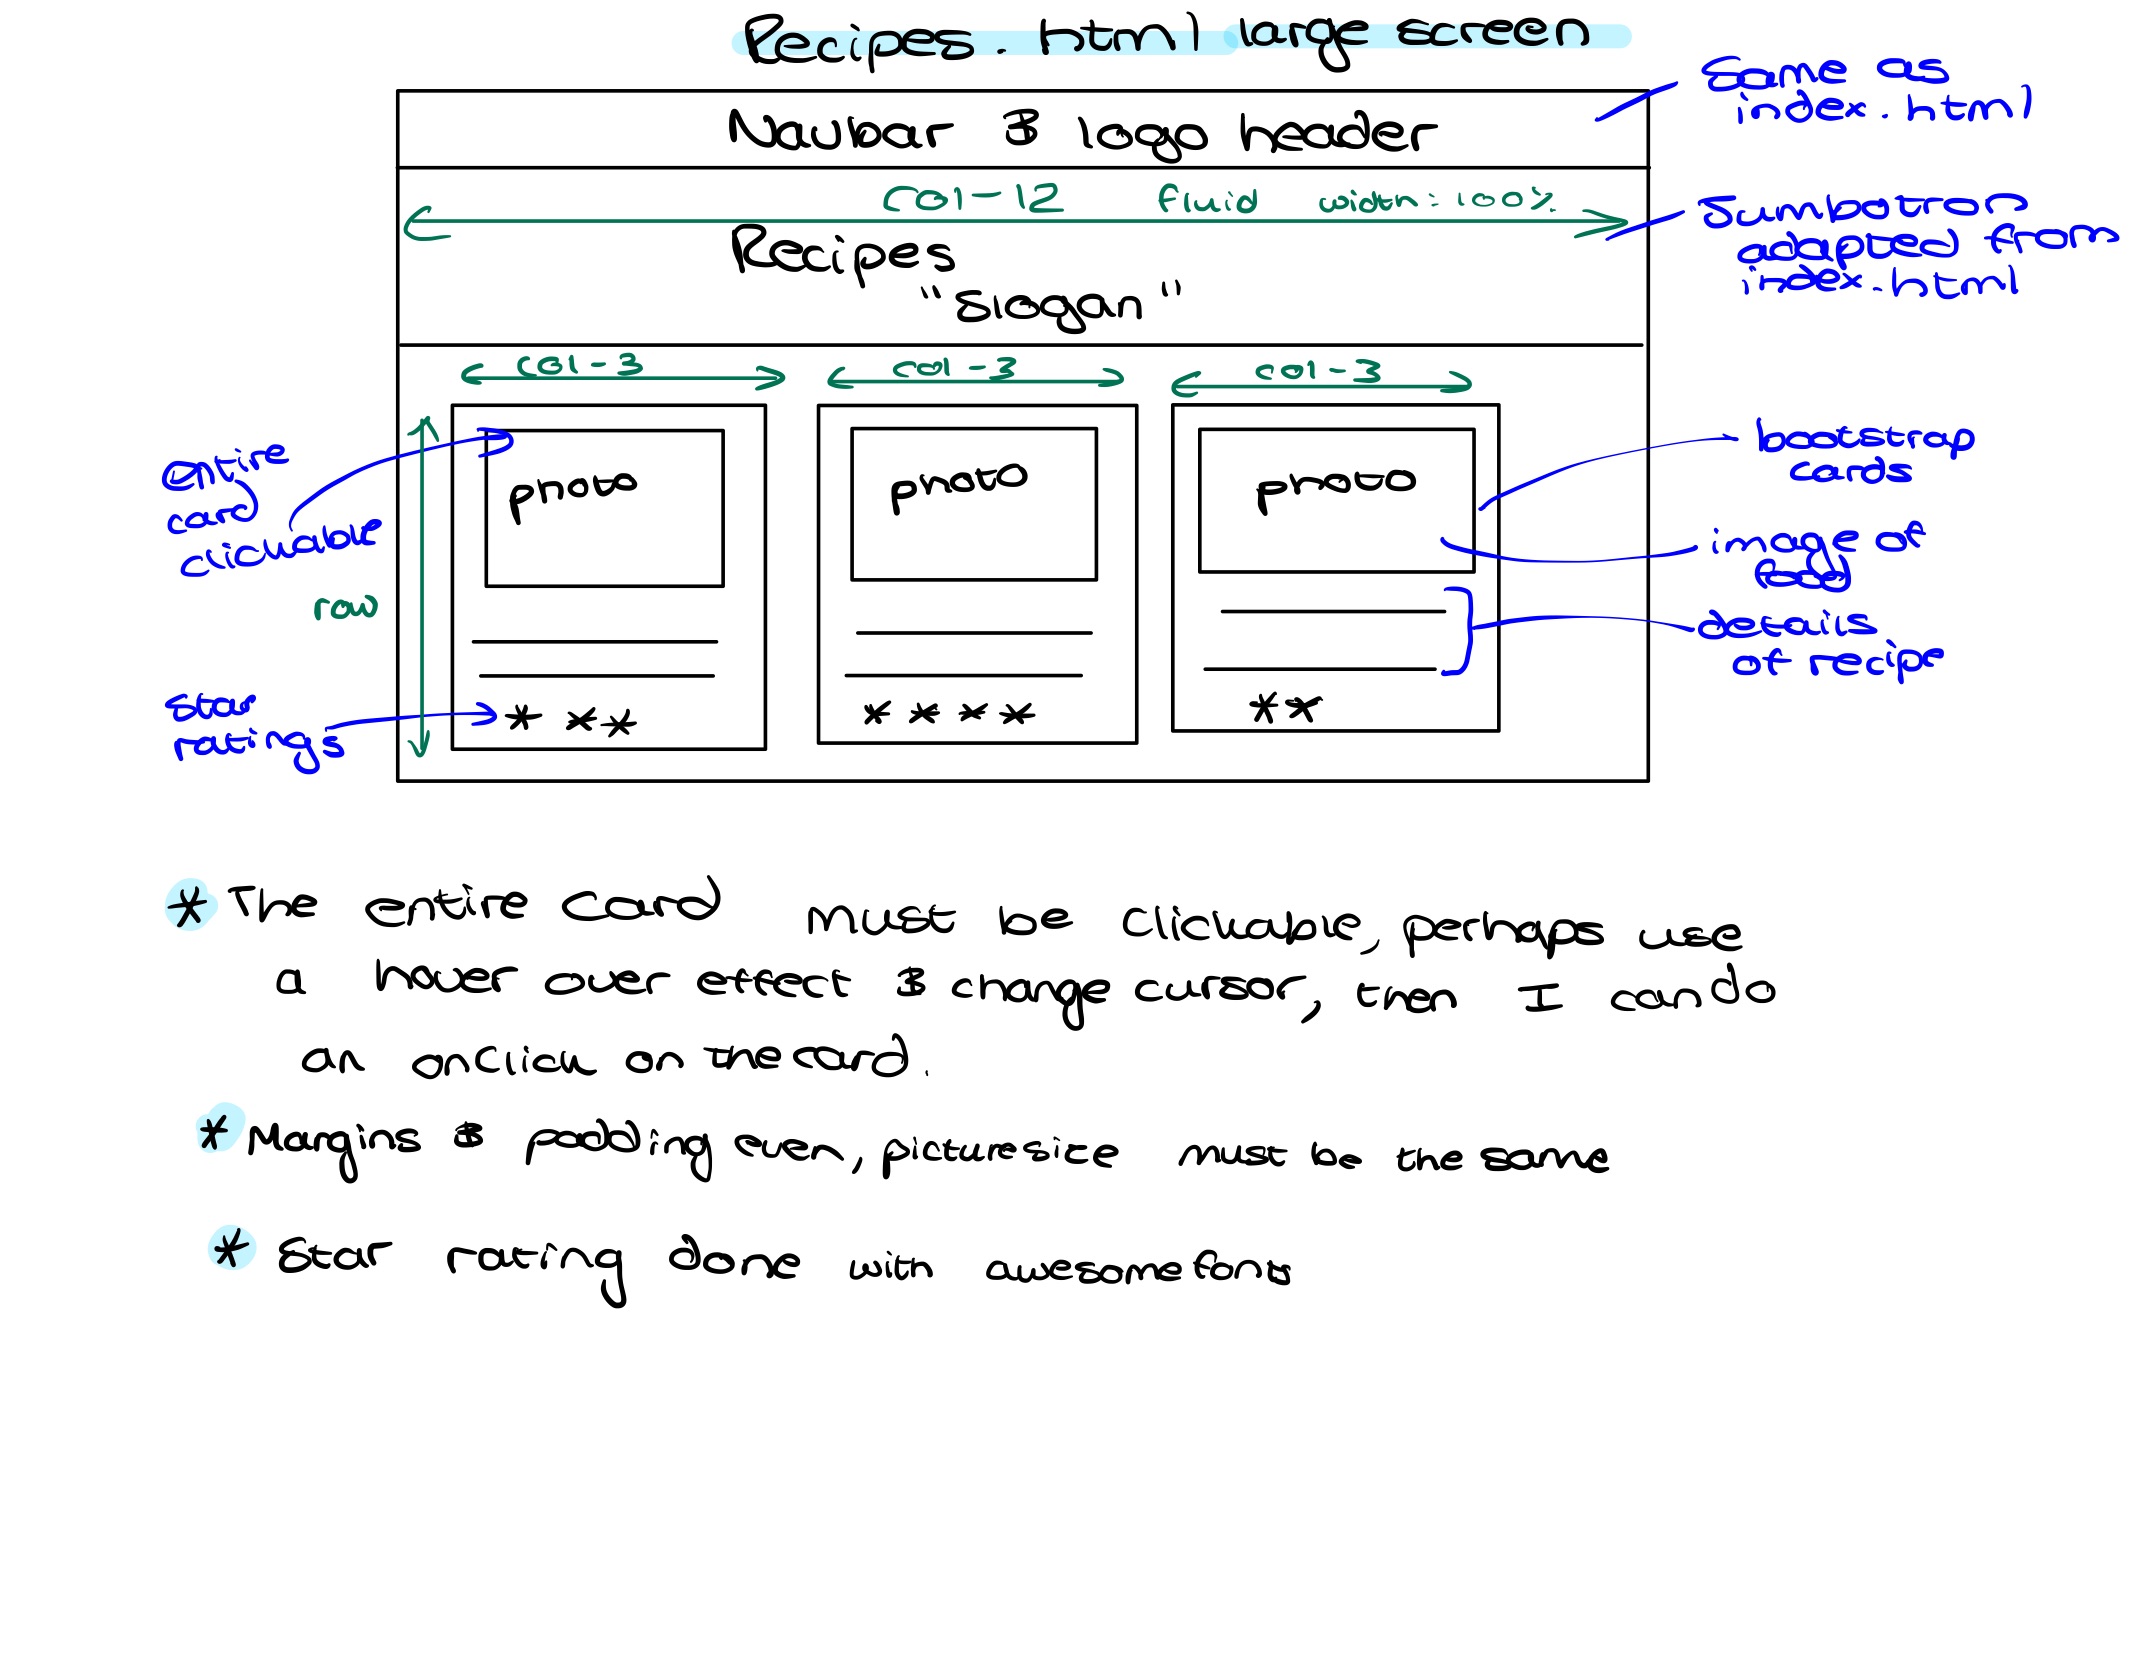 Recipes.html large screen
Same as
index.html
Navbar & logo header
col-12 fluid width: 100%
Jumbotron
adapted from
index.html
Recipes
"Slogan"
col-3 col-3 col-3
entire
card
clickable
photo photo photo
bootstrap
cards
image of
food
row
details
of recipe
star
ratings
* ** * * * * **
* The entire card must be clickable, perhaps use
a hover over effect & change cursor, then I can do
an onclick on the card.
* Margins & padding even, picture size must be the same
* Star rating done with awesomefonts